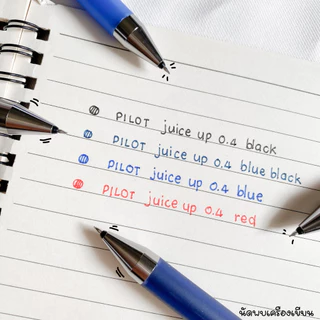 PILOT juice up 0.4 black
PILOT juice up 0.4 blue black
PILOT juice up 0.4 blue
PILOT juice up 0.4 red
นัดพบเครื่องเขียน